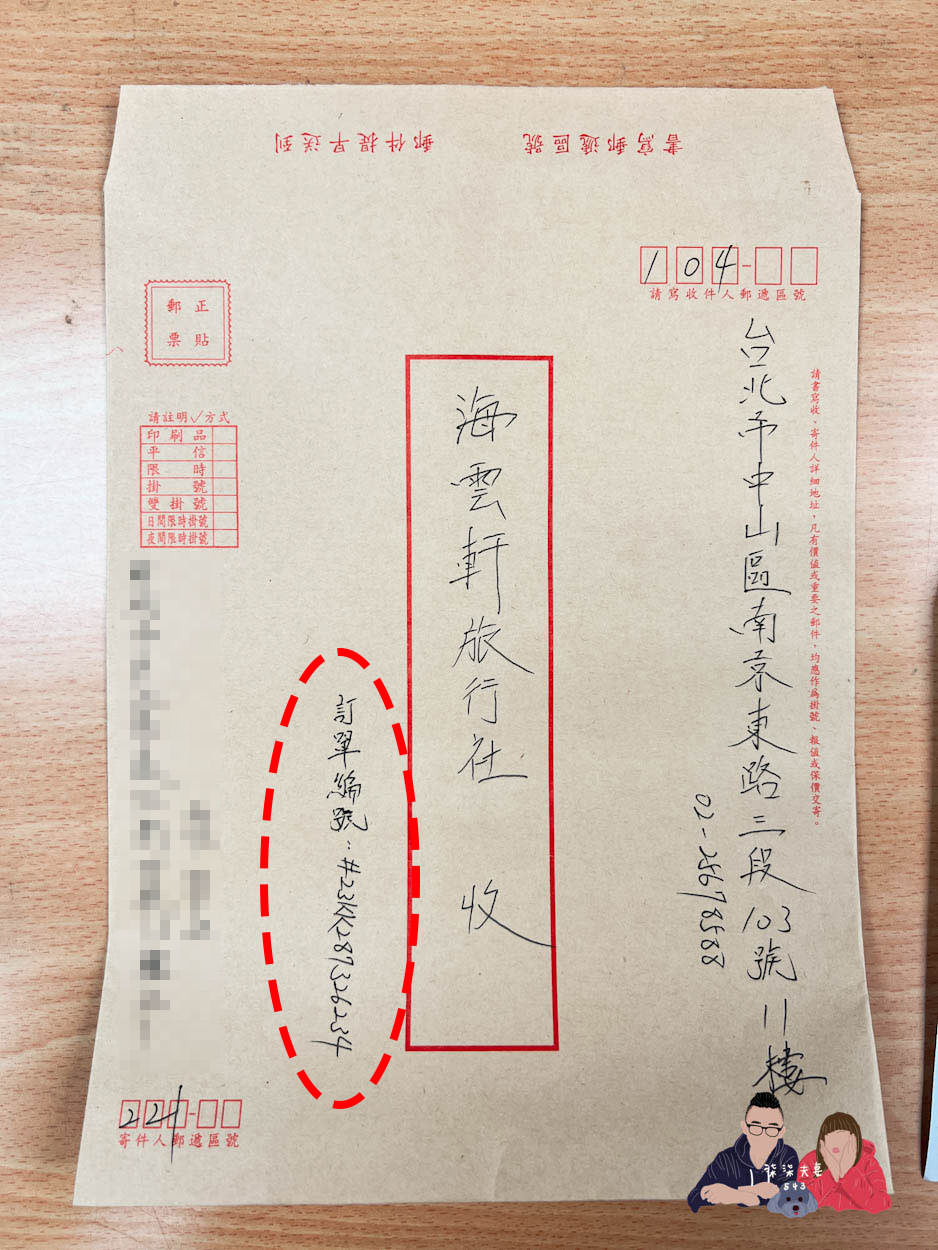 書寫郵遞區號
郵件提早送到
104
請寫收件人郵遞區號
請書寫收、寄件人詳細地址,凡有價值或重要之郵件,均應作為掛號、報值或保價交寄。
台北市中山區南京東路三段103號11樓
02-25678588
海雲軒旅行社 收
訂單編號:#23KK287326234
正貼郵票
請註明✓方式
印刷品
平信
限時
掛號
雙掛號
日間限時掛號
夜間限時掛號
221
寄件人郵遞區號
滾滾夫妻
543